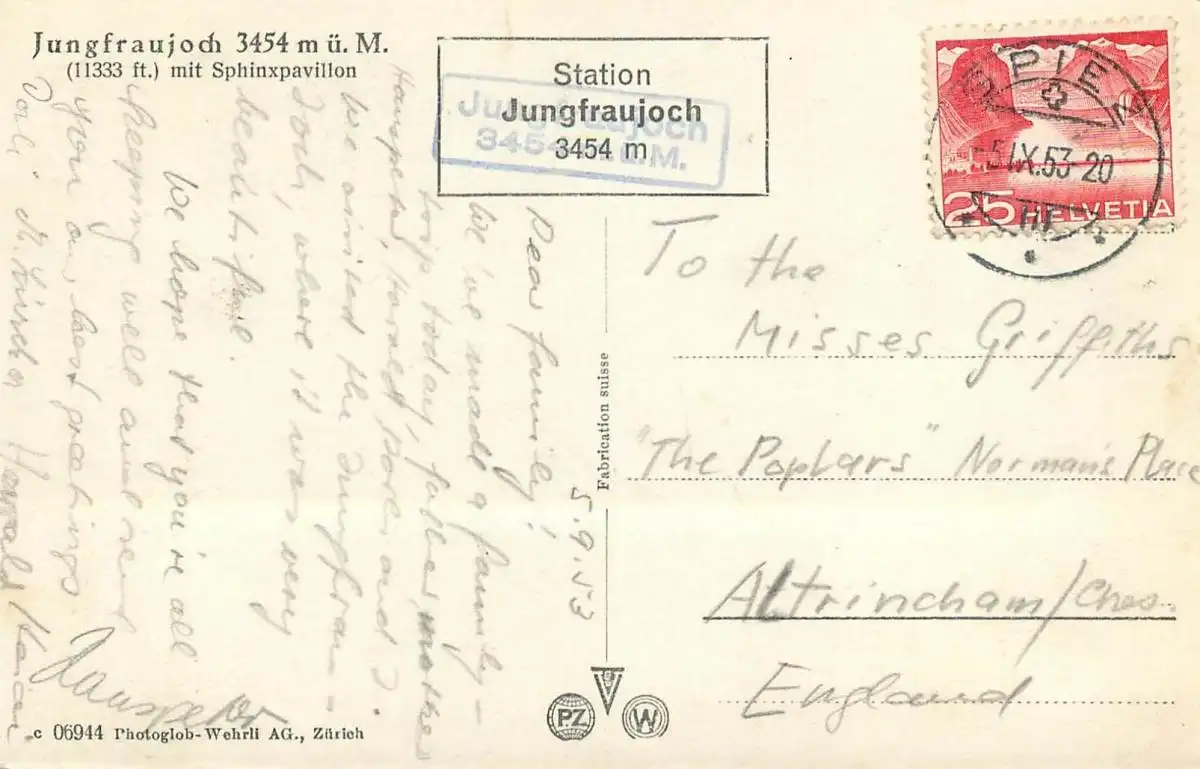 Jungfraujoch 3454 m ü. M.
(11333 ft.) mit Sphinxpavillon
Station
Jungfraujoch
3454 m
Jungfraujoch
3454 m ü.M.
5.IX.53-20
25 HELVETIA
5.9.53
Dear family!
We've made a family-
trip today, father, mother
Hanspeter, Harald, Carol, and I.
We arrived the Jungfrau-
Joch where it was very
beautiful.
We hope that you're all
keeping well and send
you our best greetings.
Harald
Hanspeter
To the
Misses Griffiths
"The Poplars" Norman's Place
Altrincham/Ches.
England
Fabrication suisse
PZ
W
c 06944 Photoglob-Wehrli AG., Zürich